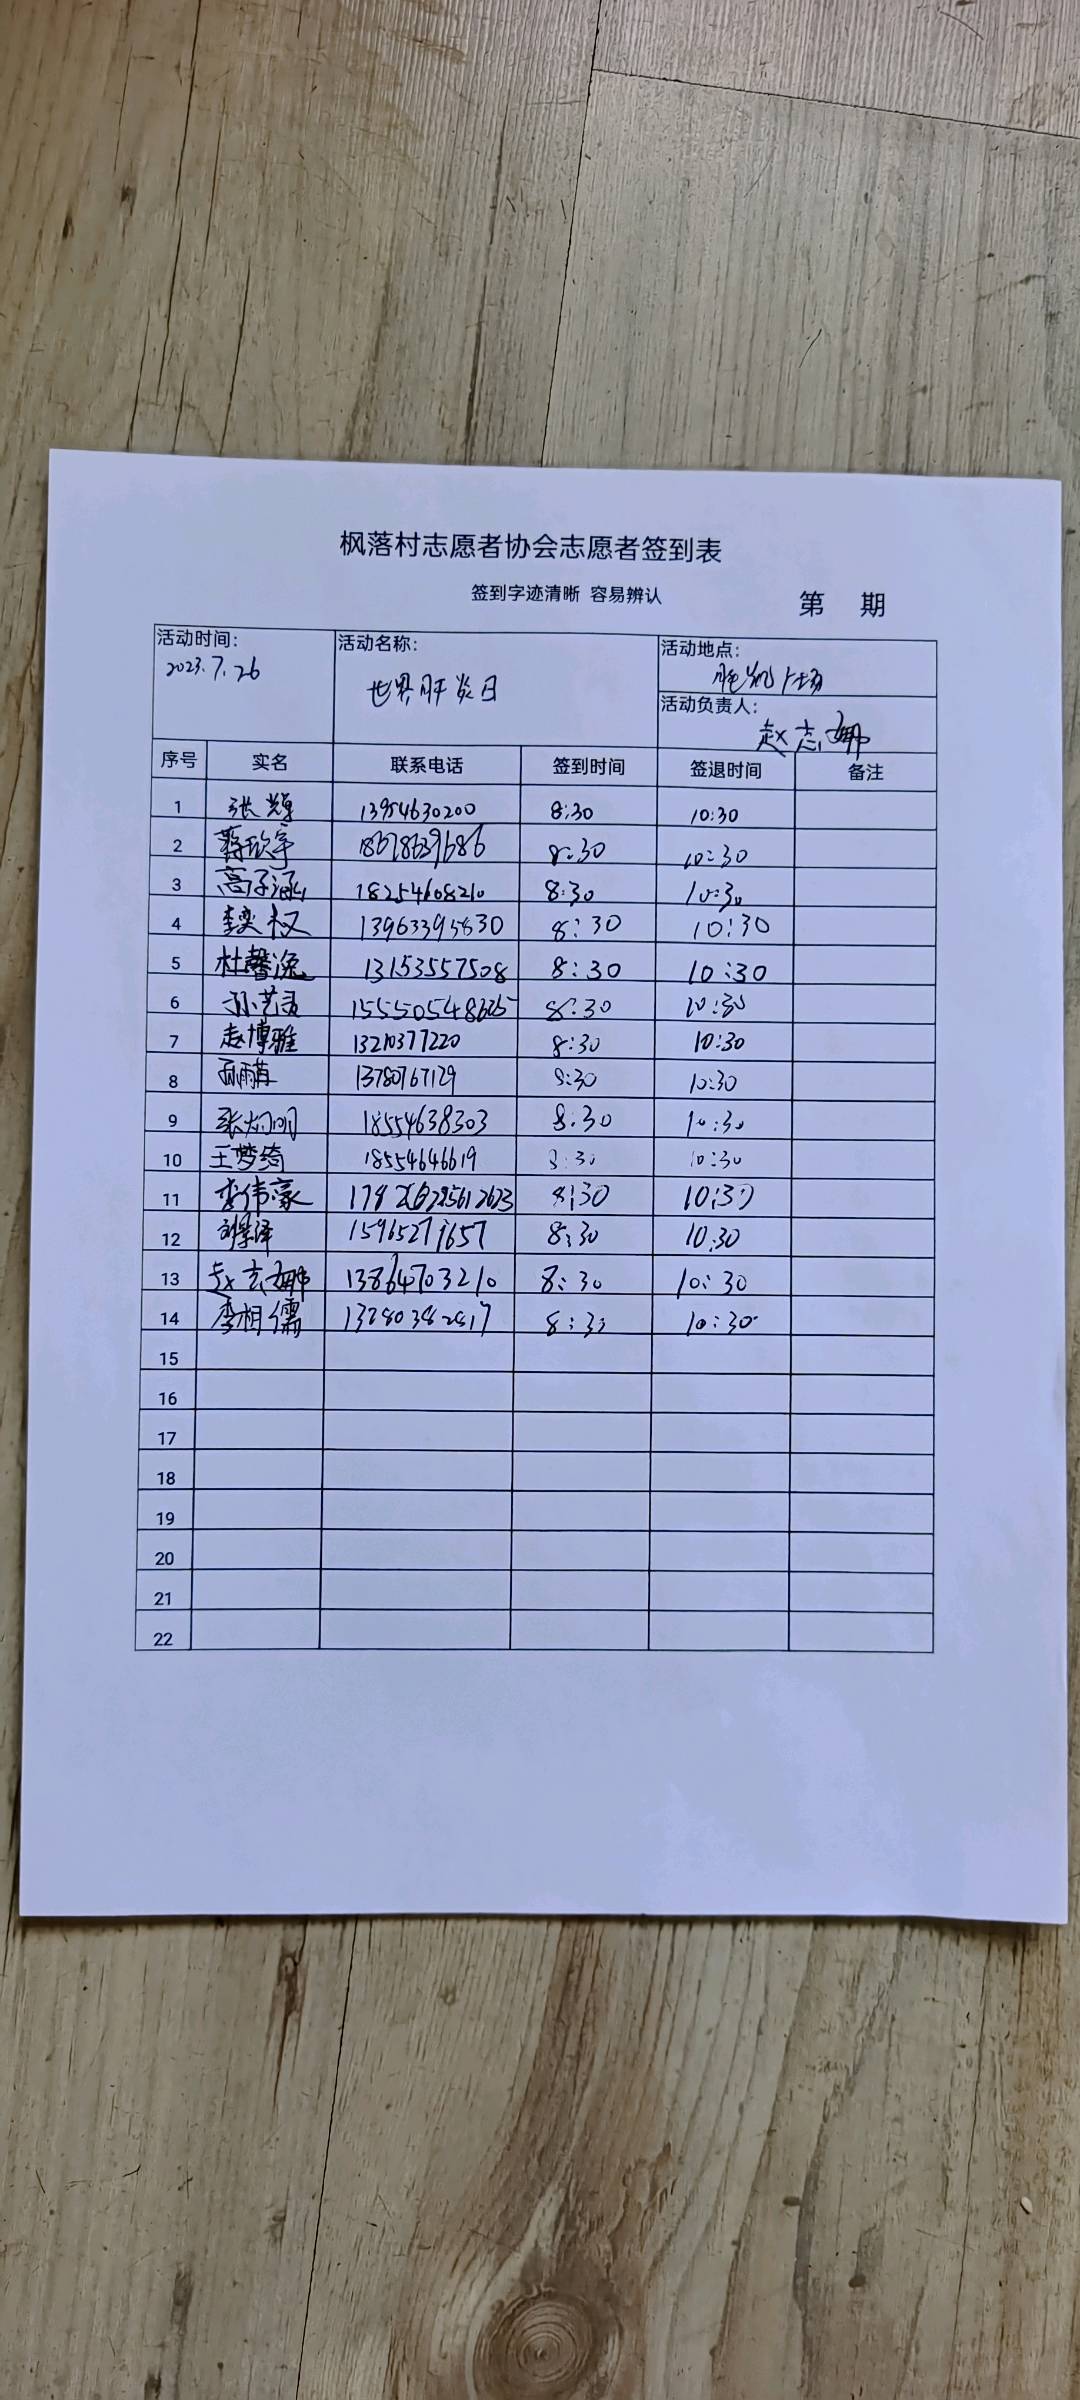 枫落村志愿者协会志愿者签到表
签到字迹清晰 容易辨认
第 期
活动时间: 活动名称: 活动地点:
2023.7.26 世界肝炎日
活动负责人:
赵志娜
序号 实名 联系电话 签到时间 签退时间 备注
1 张辉 13954630200 8:30 10:30
2 蒋欣宇 18678639686 8:30 10:30
3 高子涵 18254608210 8:30 10:30
4 李奕权 13963395830 8:30 10:30
5 杜馨逸 13153557508 8:30 10:30
6 8:30 10:30
7 赵博雅 13210377220 8:30 10:30
8 13780767129 8:30 10:30
9 18554638303 8:30 10:30
10 王梦绮 18554646619 8:30 10:30
11 李伟豪 8:30 10:30
12 15965279657 8:30 10:30
13 赵志娜 13864703210 8:30 10:30
14 李相儒 8:30 10:30
15
16
17
18
19
20
21
22